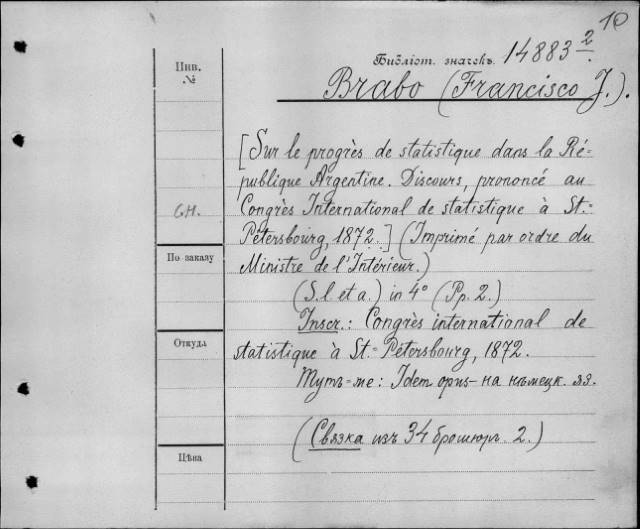 10
Библіот. значекъ 14883 2
Инв.
№
Brabo (Francisco J.).
[Sur le progrès de statistique dans la Ré=
publique Argentine. Discours, prononcé au
Congrès International de statistique à St.=
Pétersbourg, 1872.] (Imprimé par ordre du
Ministre de l'Intérieur.)
(S. l. et a.) in 4° (Pp. 2.)
Inscr.: Congrès international de
statistique à St.=Pétersbourg, 1872.
Тутъ=же: Idem opus - на нѣмецк. яз.
(Связка изъ 34 брошюръ. 2.)
По заказу
Откуда
Цѣна